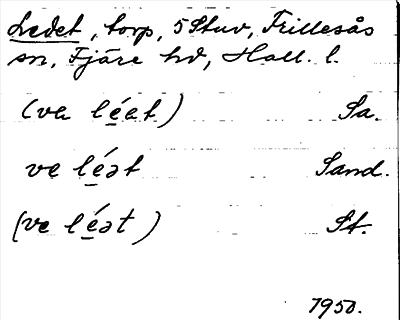 Ledet, torp, 5 Stuv, Frillesås
sn, Fjäre hd, Hall. l.
(va léat) Sa.
ve léət Sand.
(ve léət) St.
1950.